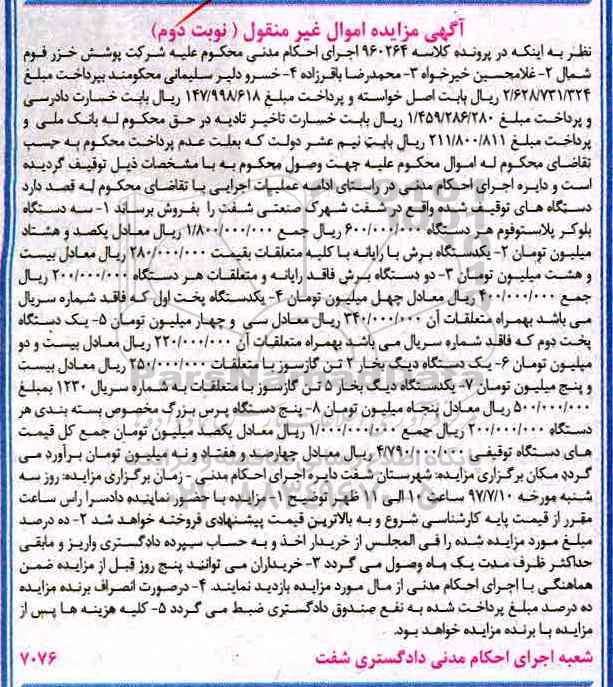 آگهی مزایده اموال غیر منقول ( نوبت دوم)
نظر به اینکه در پرونده کلاسه ۹۶۰۲۶۴ اجرای احکام مدنی محکوم علیه شرکت پوشش خزر فوم
شمال ۲- غلامحسین خیرخواه ۳- محمدرضا باقرزاده ۴- خسرو دلیر سلیمانی محکومند بپرداخت مبلغ
۲/۶۲۸/۷۳۱/۳۲۴ ریال بابت اصل خواسته و پرداخت مبلغ ۱۴۷/۹۹۸/۶۱۸ ریال بابت خسارت دادرسی
و پرداخت مبلغ ۱/۴۵۹/۲۸۶/۲۸۰ ریال بابت خسارت تاخیر تادیه در حق محکوم له بانک ملی و
پرداخت مبلغ ۲۱۱/۸۰۰/۸۱۱ ریال بابت نیم عشر دولت که بعلت عدم پرداخت محکوم به حسب
تقاضای محکوم له اموال محکوم علیه جهت وصول محکوم به با مشخصات ذیل توقیف گردیده
است و دایره اجرای احکام مدنی در راستای ادامه عملیات اجرایی با تقاضای محکوم له قصد دارد
دستگاه های توقیف شده واقع در شفت شهرک صنعتی شفت را بفروش برساند ۱- سه دستگاه
بلوکر پلاستوفوم هر دستگاه ۶۰۰/۰۰۰/۰۰۰ ریال جمع ۱/۸۰۰/۰۰۰/۰۰۰ ریال معادل یکصد و هشتاد
میلیون تومان ۲- یکدستگاه برش با رایانه با کلیه متعلقات بقیمت ۲۸۰/۰۰۰/۰۰۰ ریال معادل بیست
و هشت میلیون تومان ۳- دو دستگاه برش فاقد رایانه و متعلقات هر دستگاه ۲۰۰/۰۰۰/۰۰۰ ریال
جمع ۴۰۰/۰۰۰/۰۰۰ ریال معادل چهل میلیون تومان ۴- یکدستگاه پخت اول که فاقد شماره سریال
می باشد بهمراه متعلقات آن ۳۴۰/۰۰۰/۰۰۰ ریال معادل سی و چهار میلیون تومان ۵- یک دستگاه
پخت دوم که فاقد شماره سریال می باشد بهمراه متعلقات آن ۲۲۰/۰۰۰/۰۰۰ ریال معادل بیست و دو
میلیون تومان ۶- یک دستگاه دیگ بخار ۲ تن گازسوز با متعلقات ۲۵۰/۰۰۰/۰۰۰ ریال معادل بیست
و پنج میلیون تومان ۷- یکدستگاه دیگ بخار ۵ تن گازسوز با متعلقات به شماره سریال ۱۲۳۰ بمبلغ
۵۰۰/۰۰۰/۰۰۰ ریال معادل پنجاه میلیون تومان ۸- پنج دستگاه پرس بزرگ مخصوص بسته بندی هر
دستگاه ۲۰۰/۰۰۰/۰۰۰ ریال جمع ۱/۰۰۰/۰۰۰/۰۰۰ ریال معادل یکصد میلیون تومان جمع کل قیمت
های دستگاه توقیفی ۴/۷۹۰/۰۰۰/۰۰۰ ریال معادل چهارصد و هفتاد و نه میلیون تومان برآورد می
گردد مکان برگزاری مزایده: شهرستان شفت دایره اجرای احکام مدنی - زمان برگزاری مزایده: روز سه
شنبه مورخه ۹۷/۷/۱۰ ساعت ۱۰ الی ۱۱ ظهر؛ توضیح ۱- مزایده با حضور نماینده دادسرا راس ساعت
مقرر از قیمت پایه کارشناسی شروع و به بالاترین قیمت پیشنهادی فروخته خواهد شد ۲- ده درصد
مبلغ مورد مزایده شده را فی المجلس از خریدار اخذ و به حساب سپرده دادگستری واریز و مابقی
حداکثر ظرف مدت یک ماه وصول می گردد ۳- خریداران می توانند پنج روز قبل از مزایده ضمن
هماهنگی با اجرای احکام مدنی از مال مورد مزایده بازدید نمایند. ۴- درصورت انصراف برنده مزایده
ده درصد مبلغ پرداخت شده به نفع صندوق دادگستری ضبط می گردد ۵- کلیه هزینه ها پس از
مزایده با برنده مزایده خواهد بود.
شعبه اجرای احکام مدنی دادگستری شفت ۷۰۷۶